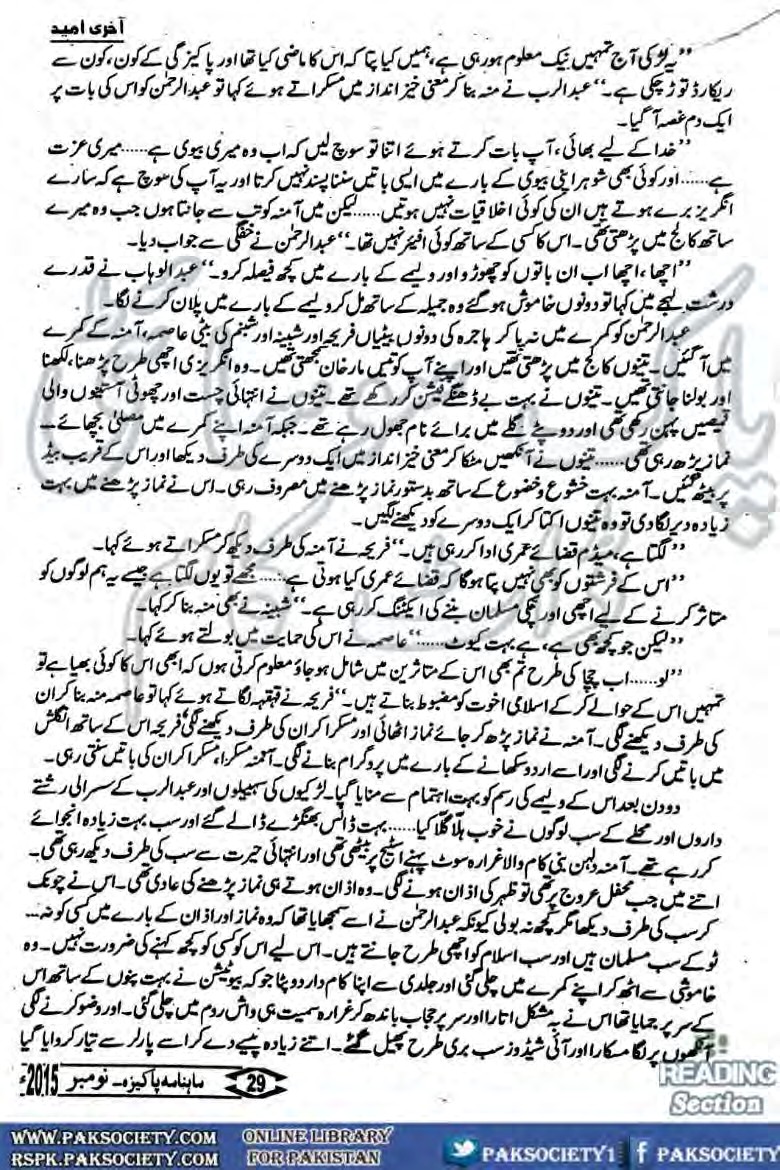 آخری امید
”یہ لڑکی آج تمہیں نیک معلوم ہورہی ہے، ہمیں کیا پتا کہ اس کا ماضی کیا تھا اور پاکیزگی کے کون، کون سے
ریکارڈ توڑ چکی ہے۔“ عبدالرب نے منہ بنا کر معنی خیز انداز میں مسکراتے ہوئے کہا تو عبدالرحمٰن کو اس کی بات پر
ایک دم غصہ آ گیا۔
”خدا کے لیے بھائی، آپ بات کرتے ہوئے اتنا تو سوچ لیں کہ اب وہ میری بیوی ہے ...... میری عزت
ہے ...... اور کوئی بھی شوہر اپنی بیوی کے بارے میں ایسی باتیں سننا پسند نہیں کرتا اور یہ آپ کی سوچ ہے کہ سارے
انگریز برے ہوتے ہیں ان کی کوئی اخلاقیات نہیں ہوتیں ...... لیکن میں آمنہ کو تب سے جانتا ہوں جب وہ میرے
ساتھ کالج میں پڑھتی تھی۔ اس کا کسی کے ساتھ کوئی افیئر نہیں تھا۔“ عبدالرحمٰن نے خفگی سے جواب دیا۔
”اچھا، اچھا اب ان باتوں کو چھوڑو اور ولیمے کے بارے میں کچھ فیصلہ کرو۔“ عبدالوہاب نے قدرے
درشت لہجے میں کہا تو دونوں خاموش ہو گئے وہ جمیلہ کے ساتھ مل کر ولیمے کے بارے میں پلان کرنے لگا۔
عبدالرحمٰن کو کمرے میں نہ پا کر ہاجرہ کی دونوں بیٹیاں فریحہ اور شبینہ اور شبنم کی بیٹی عاصمہ، آمنہ کے کمرے
میں آ گئیں۔ تینوں کالج میں پڑھتی تھیں اور اپنے آپ کو تیس مار خان سمجھتی تھیں۔ وہ انگریزی اچھی طرح پڑھنا، لکھنا
اور بولنا جانتی تھیں۔ تینوں نے بہت بے ڈھنگے فیشن کر رکھے تھے۔ تینوں نے انتہائی چست اور چھوٹی آستینوں والی
قمیصیں پہن رکھی تھی اور دوپٹے گلے میں برائے نام جھول رہے تھے۔ جبکہ آمنہ اپنے کمرے میں مصلیٰ بچھائے ...
نماز پڑھ رہی تھی ...... تینوں نے آنکھیں مٹکا کر معنی خیز انداز میں ایک دوسرے کی طرف دیکھا اور اس کے قریب بیڈ
پر بیٹھ گئیں۔ آمنہ بہت خشوع و خضوع کے ساتھ بدستور نماز پڑھنے میں مصروف رہی۔ اس نے نماز پڑھنے میں بہت
زیادہ دیر لگا دی تو وہ تینوں اکتا کر ایک دوسرے کو دیکھنے لگیں۔
”لگتا ہے، میڈم قضائے عمری ادا کر رہی ہیں۔“ فریحہ نے آمنہ کی طرف دیکھ کر مسکراتے ہوئے کہا۔
”اس کے فرشتوں کو بھی نہیں پتا ہوگا کہ قضائے عمری کیا ہوتی ہے ...... مجھے تو یوں لگتا ہے جیسے یہ ہم لوگوں کو
متاثر کرنے کے لیے اچھی اور پکی مسلمان بننے کی ایکٹنگ کر رہی ہے۔“ شبینہ نے بھی منہ بنا کر کہا۔
”لیکن جو کچھ بھی ہے، ہے بہت کیوٹ ......“ عاصمہ نے اس کی حمایت میں بولتے ہوئے کہا۔
”لو ...... اب چچا کی طرح تم بھی اس کے متاثرین میں شامل ہو جاؤ معلوم کرتی ہوں کہ ابھی اس کا کوئی بھیا ہے تو
تمہیں اس کے حوالے کر کے اسلامی اخوت کو مضبوط بناتے ہیں۔“ فریحہ نے قہقہہ لگاتے ہوئے کہا تو عاصمہ منہ بنا کر ان
کی طرف دیکھنے لگی۔ آمنہ نے نماز پڑھ کر جائے نماز اٹھائی اور مسکرا کر ان کی طرف دیکھنے لگی فریحہ اس کے ساتھ انگلش
میں باتیں کرنے لگی اور اسے اردو سکھانے کے بارے میں پروگرام بنانے لگی۔ آمنہ مسکرا، مسکرا کر ان کی باتیں سنتی رہی۔
دو دن بعد اس کے ولیمے کی رسم کو بہت اہتمام سے منایا گیا۔ لڑکیوں کی سہیلیوں اور عبدالرب کے سسرالی رشتے
داروں اور محلے کے سب لوگوں نے خوب ہلا گلا کیا ...... بہت ڈانس بھنگڑے ڈالے گئے اور سب بہت زیادہ انجوائے
کر رہے تھے۔ آمنہ دلہن بنی کام والا غرارہ سوٹ پہنے اسٹیج پر بیٹھی تھی اور انتہائی حیرت سے سب کی طرف دیکھ رہی تھی۔
اتنے میں جب محفل عروج پر تھی تو ظہر کی اذان ہونے لگی۔ وہ اذان ہوتے ہی نماز پڑھنے کی عادی تھی۔ اس نے چونک
کر سب کی طرف دیکھا مگر کچھ نہ بولی کیونکہ عبدالرحمٰن نے اسے سمجھایا تھا کہ وہ نماز اور اذان کے بارے میں کسی کو نہ ...
ٹوکے سب مسلمان ہیں اور سب اسلام کو اچھی طرح جانتے ہیں۔ اس لیے اس کو کسی کو کچھ کہنے کی ضرورت نہیں۔ وہ
خاموشی سے اٹھ کر اپنے کمرے میں چلی گئی اور جلدی سے اپنا کام دار دوپٹا جو کہ بیوٹیشن نے بہت پنوں کے ساتھ اس
کے سر پر جمایا تھا اس نے بہ مشکل اتارا اور سر پر حجاب باندھ کر غرارہ سمیت ہی واش روم میں چلی گئی۔ اور وضو کرنے لگی
آنکھوں پر لگا مسکارا اور آئی شیڈوز سب بری طرح پھیل گئے۔ اتنے زیادہ پیسے دے کر اسے پارلر سے تیار کروایا گیا
ماہنامہ پاکیزہ۔ نومبر 2015ء
29
READING
Section
WWW.PAKSOCIETY.COM ONLINE LIBRARY PAKSOCIETY1 PAKSOCIETY
RSPK.PAKSOCIETY.COM FOR PAKISTAN
پاک سوسائٹی
ڈاٹ کام